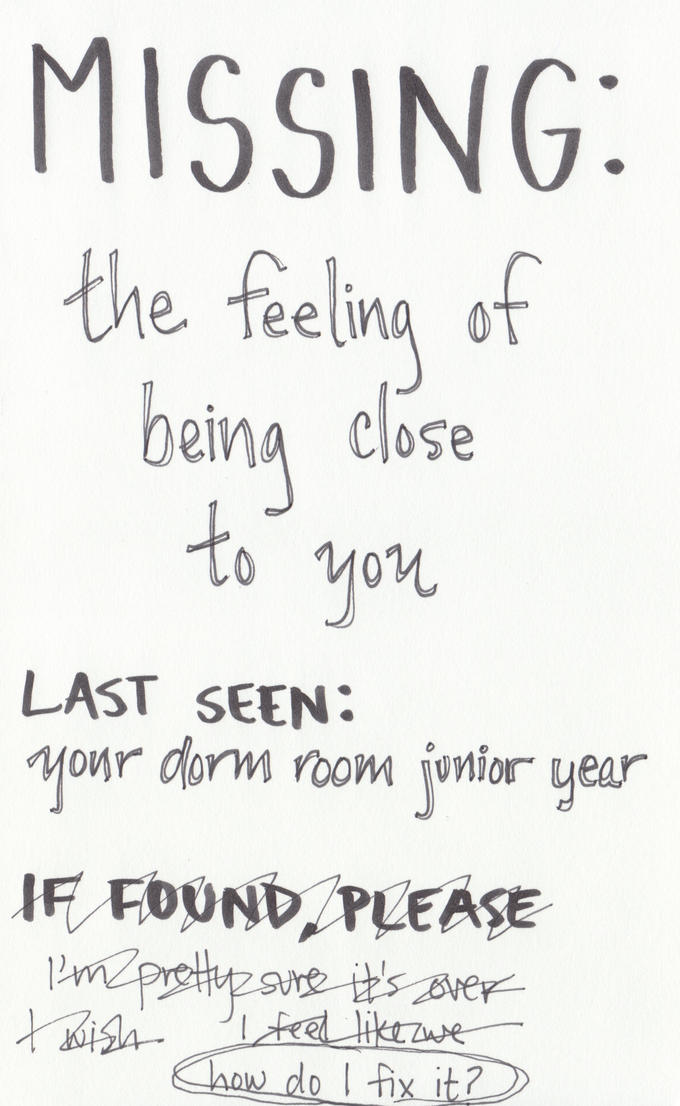 MISSING:
the feeling of
being close
to you
LAST SEEN:
your dorm room junior year
IF FOUND, PLEASE
I'm pretty sure it's over
I wish I feel like we
how do I fix it?